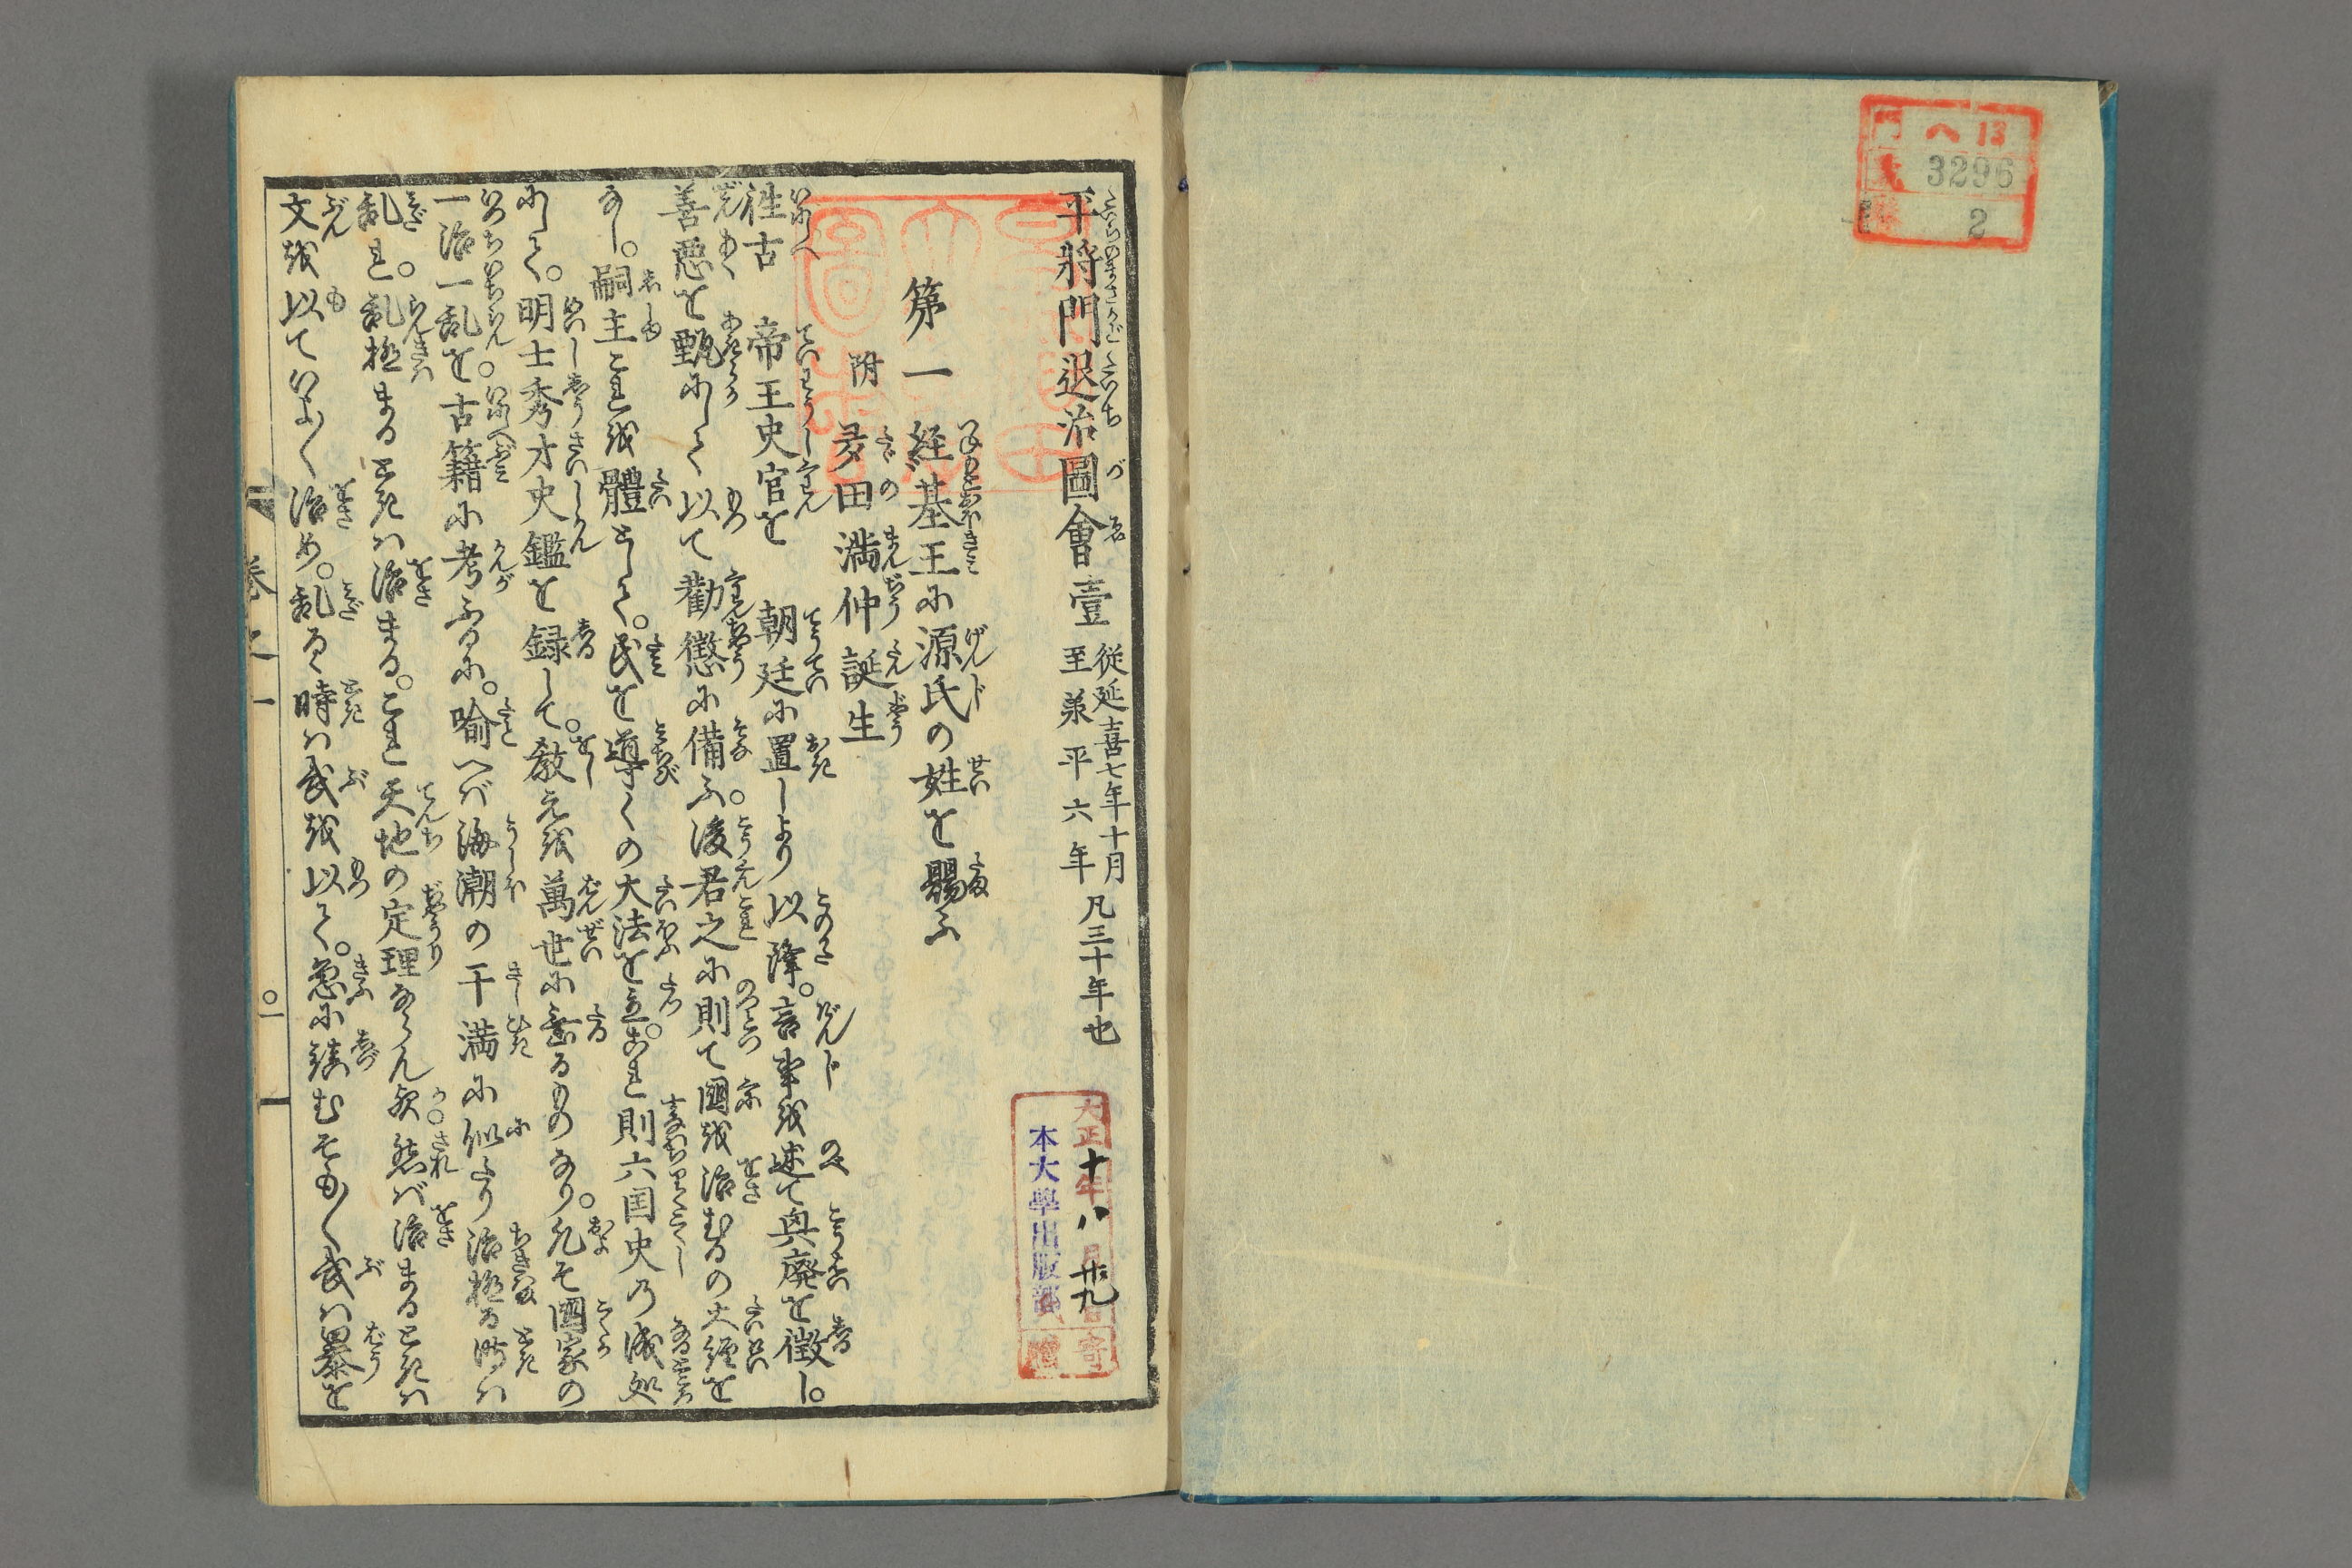 へ13
3296
2
平將門退治圖會壹
従延喜七年十月
至承平六年
凡三十年也
大正十年八月廿九日寄贈
本大學出版部
第一 経基王に源氏の姓を賜ふ
附 多田満仲誕生
徃古 帝王史官を 朝廷に置しより以降。言事を述て興廃を徴し。
善惡を甄にして以て勸懲に備ふ。後君之に則て國を治むるの大經を
なし。嗣主これを體として。民を導くの大法を立。これ則六国史乃成処
にして。明士秀才史鑑を録して。教えを萬世に垂るものなり。凡そ國家の
一治一乱を古籍に考ふるに。喻へバ海潮の干満に似たり治極る時ハ
乱れ。乱極まるときハ治まる。これ天地の定理ならん歟。然バ治まるときハ
文を以ていよ〱治め。乱るゝ時ハ武を以て。急に鎮むそも〱武ハ暴を
巻之一
〇一